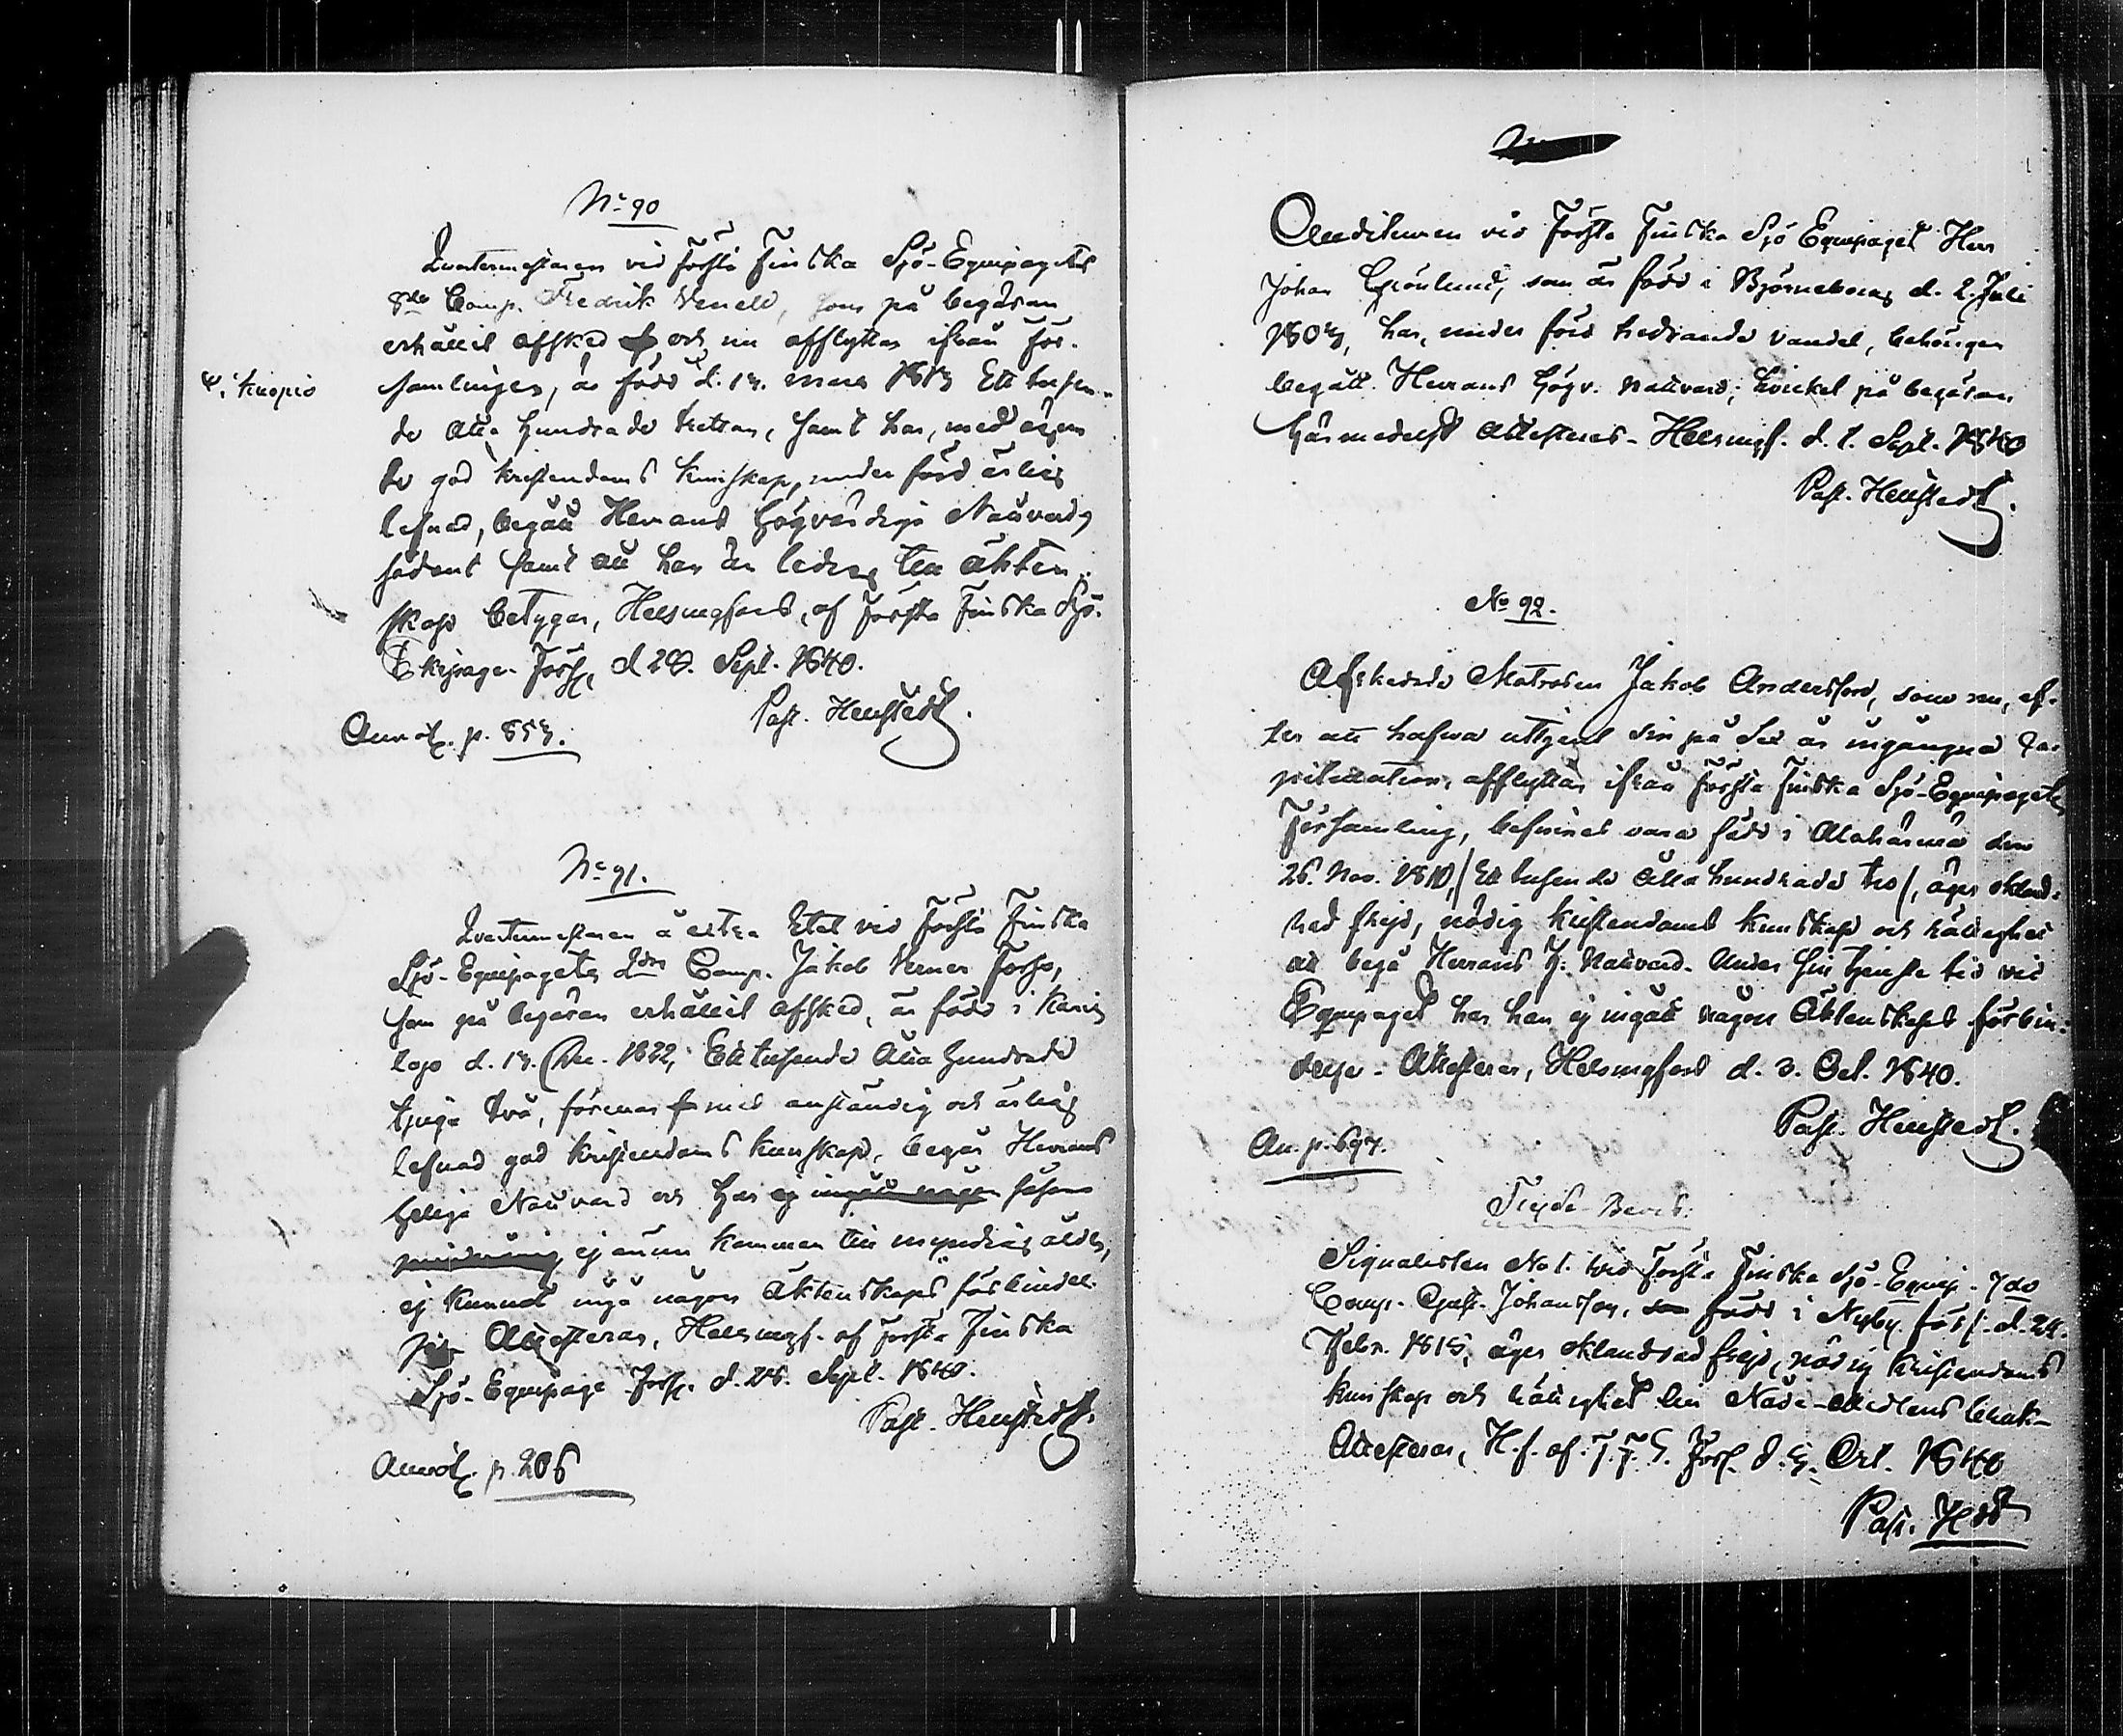 No 90
Qvartermästaren vid Första Finska Sjö-Equipagets
8de Comp. Fredrik Venell, som på begäran
erhållit afsked och nu afflyttar ifrån för-
i Kuopio
samlingen, är född d. 13. mars 1813 Ett tusen-
de åtta hundrade tretton, samt har, med ägan-
de god kristendoms kunskap, under förd ärlig
lefnad, begått Herrans Högvärdiga Nattvard,
sådant samt att han är ledig till äkten-
skap betygar, Helsingfors, af Första Finska Sjö-
Ekipage-Förs. d 28. Sept. 1840.
Past. Henstedt.
Annot. p. 553.
No 91.
Qvartermästaren à extra Etat vid Första Finska
Sjö-Equipagets 2dra Comp. Jakob Verner Forss,
som på begäran erhållit afsked, är född i Karis
d. 13. Dec. 1822, Ett tusende åtta hundrade
tjugu två, förenar med anständig och ärlig
lefnad god kristendoms kunskap, begår Herrans
heliga Nattvard och har ej ingått någon såsom
ej ännu kommen till myndig ålder,
ej kunnat ingå någon äktenskaps förbindel-
se Attesteras, Helsingf. af Första Finska
Sjö-Equipage Förs. d. 28. Sept. 1840.
Past. Henstedt.
Annot. p. 206
Auditeuren vid Första Finska Sjö Equipaget Herr
Johan Grönlund, som är född i Björneborg d. 2. Juli
1803, har, under förd hedrande vandel, behörigen
begått Herrans Högv. Nattvard; hvilket på begäran
härmedelst attesteras. Helsingf. d. 1. Sept. 1840
Past. Henstedt.
No 92.
Afskedade Matrosen Jakob Andersson, som nu, ef-
ter att hafva uttjent sin på sex år ingångna Ca-
pitulation, afflyttar ifrån Första Finska Sjö-Equipagets
Församling, befinnes vara född i Alahärmä den
26. Nov. 1810, / Ett tusende åtta hundrade tio /, äger okland-
rad frejd, nödig kristendoms kunskap och rättighet
att begå Herrans H. Nattvard. Under sin tjenste tid vid
Equipaget har han ej ingått någon Äktenskaps förbin-
delse. Attesteras, Helsingfors d. 3. Oct. 1840.
Past. Henstedt.
An. p. 697.
Frejde-Bevis.
Signalisten No 1. vid Första Finska Sjö-Equip. 7de
Comp. Gust. Johansson, som född i Nyby förs. d. 24.
Febr. 1815, äger oklandrad frejd, nödig kristendoms
kunskap och rättighet till Nåde-Medlens bruk-
Attesteras, H.f. af F. F. S. Förs. d. 9. Oct. 1840
Past. Hdt